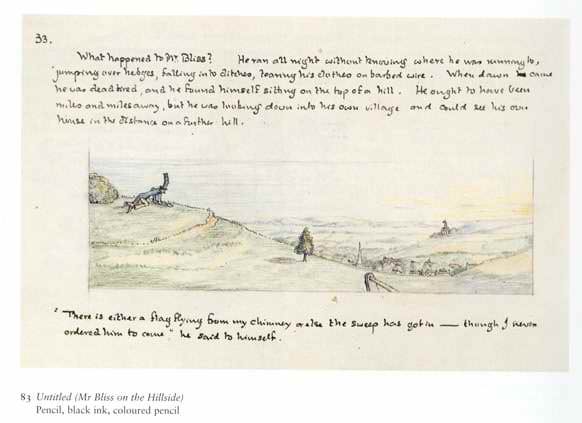 33.
What happened to Mr. Bliss? He ran all night without knowing where he was running to,
jumping over hedges, falling into ditches, tearing his clothes on barbed wire. When dawn came
he was dead tired, and he found himself sitting on the top of a hill. He ought to have been
miles and miles away, but he was looking down into his own village and could see his own
house in the distance on a further hill.
"There is either a flag flying from my chimney or else the sweep has got in — though I never
ordered him to come." he said to himself.
83 Untitled (Mr Bliss on the Hillside)
Pencil, black ink, coloured pencil